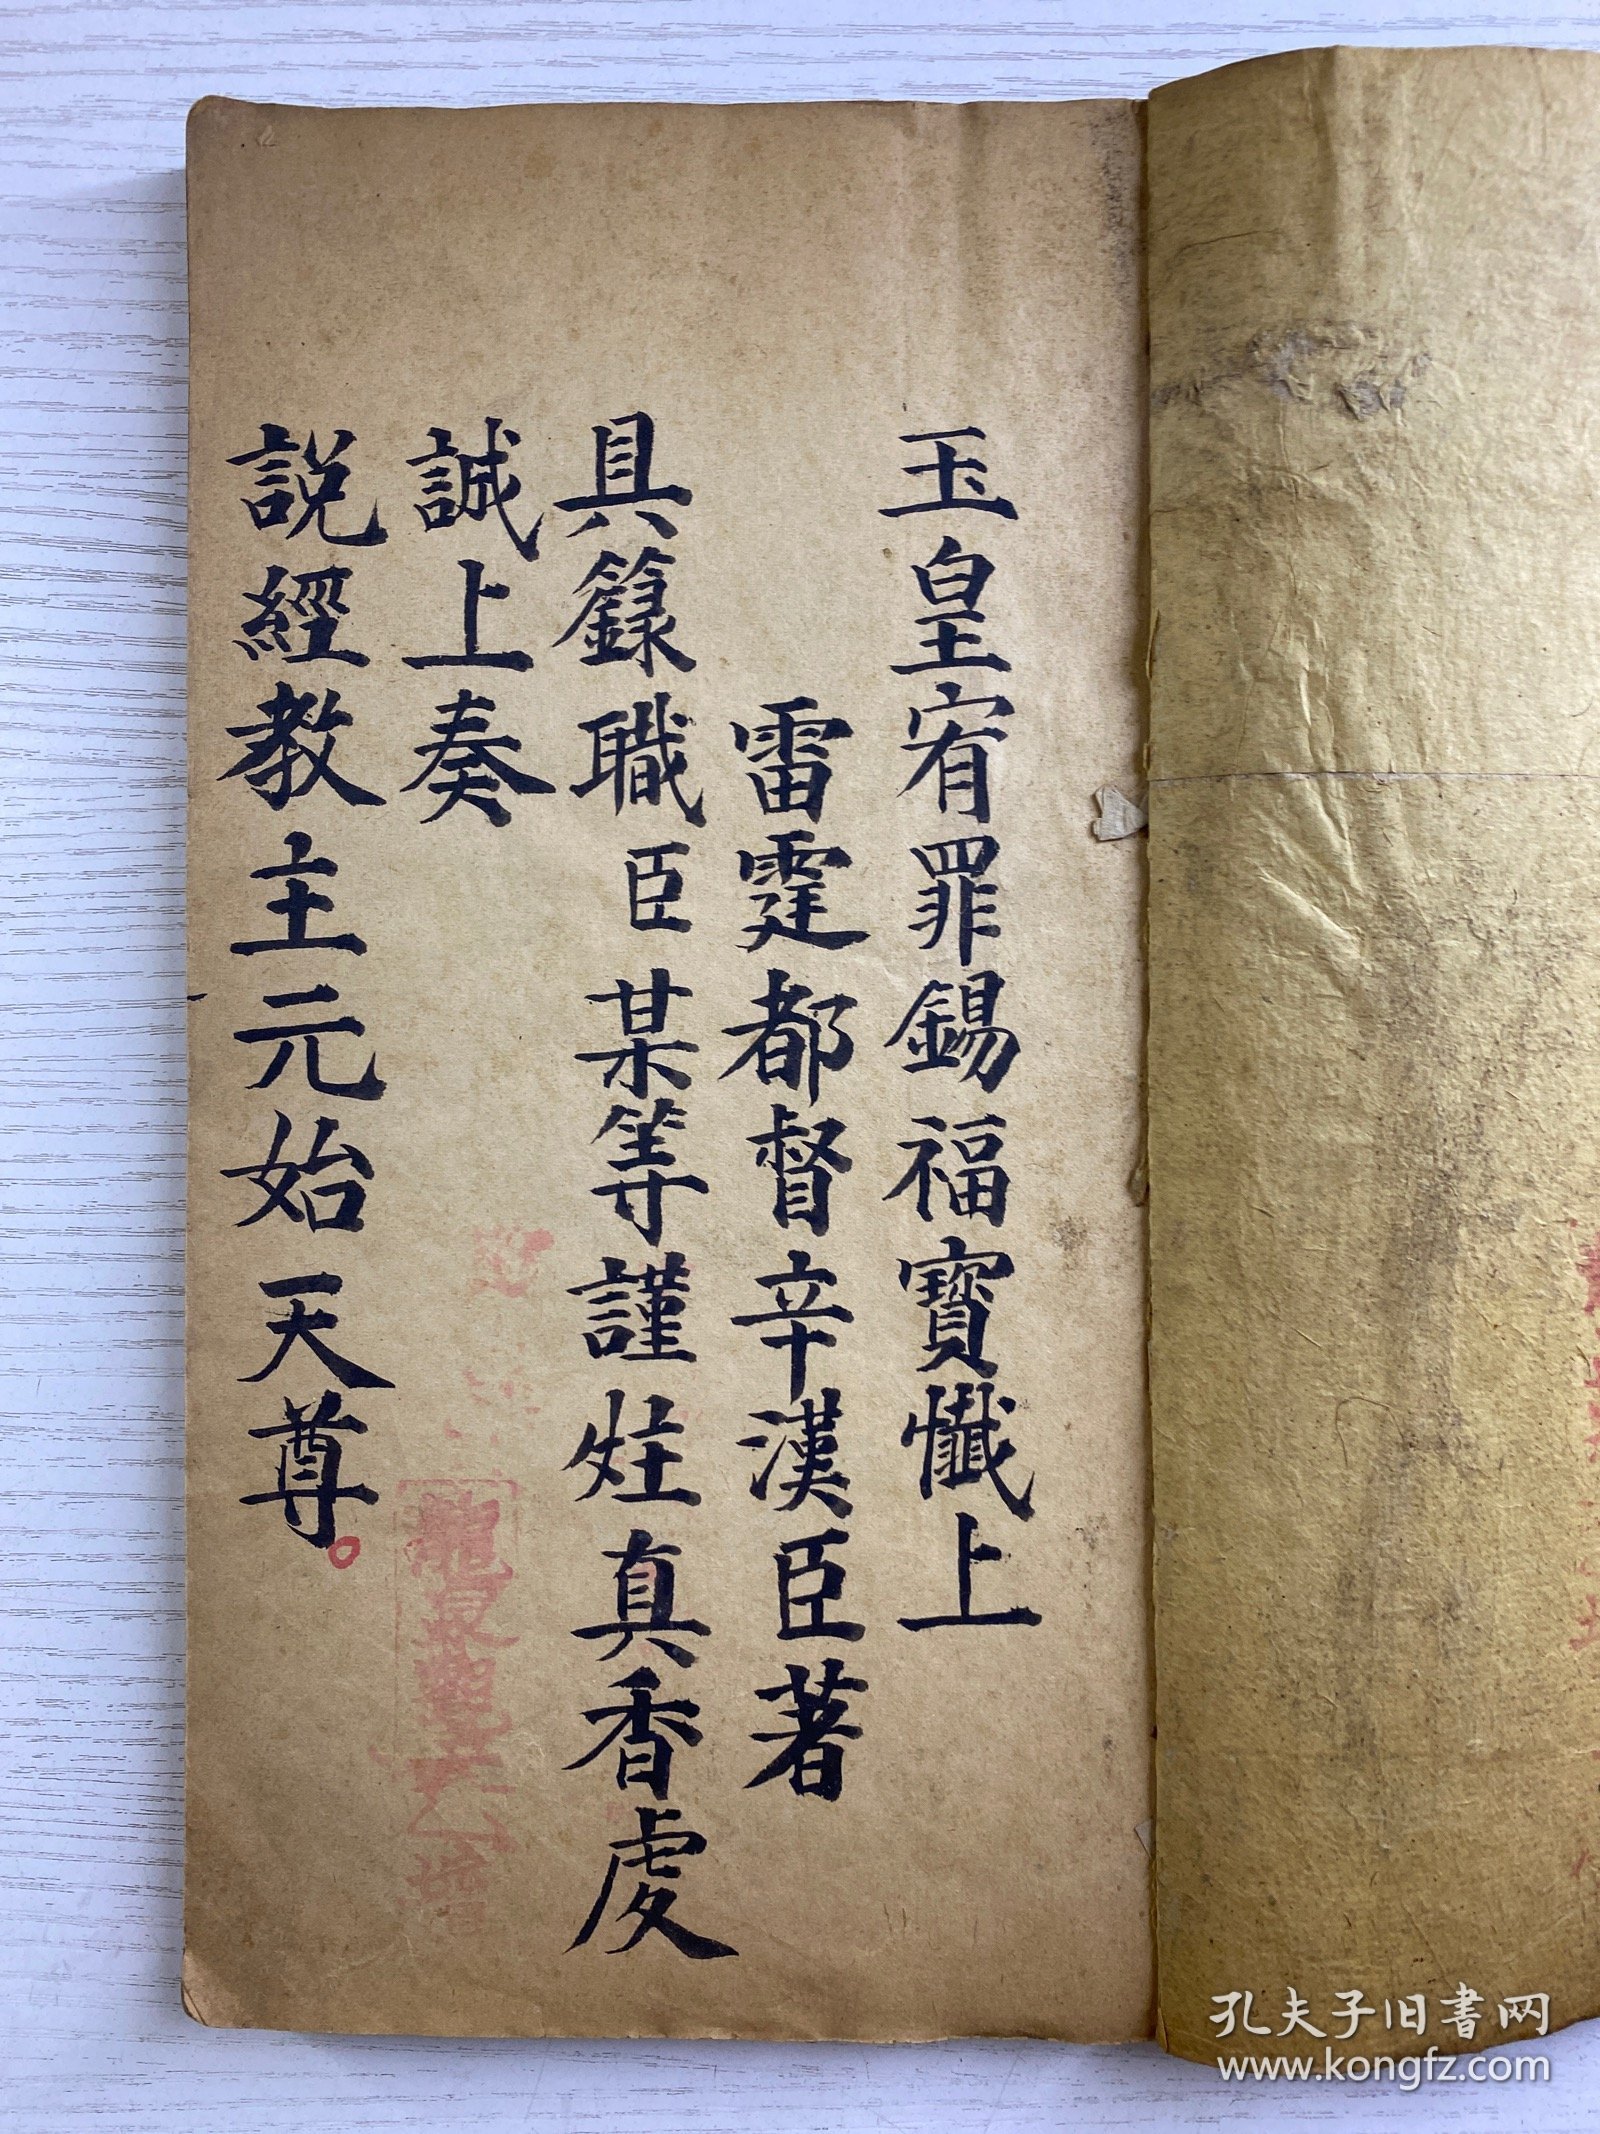 玉皇宥罪錫福寶懺上
雷霆都督辛漢臣著
具籙職臣某等謹炷真香虔
誠上奏
說經教主元始天尊。
孔夫子旧书网
www.kongfz.com